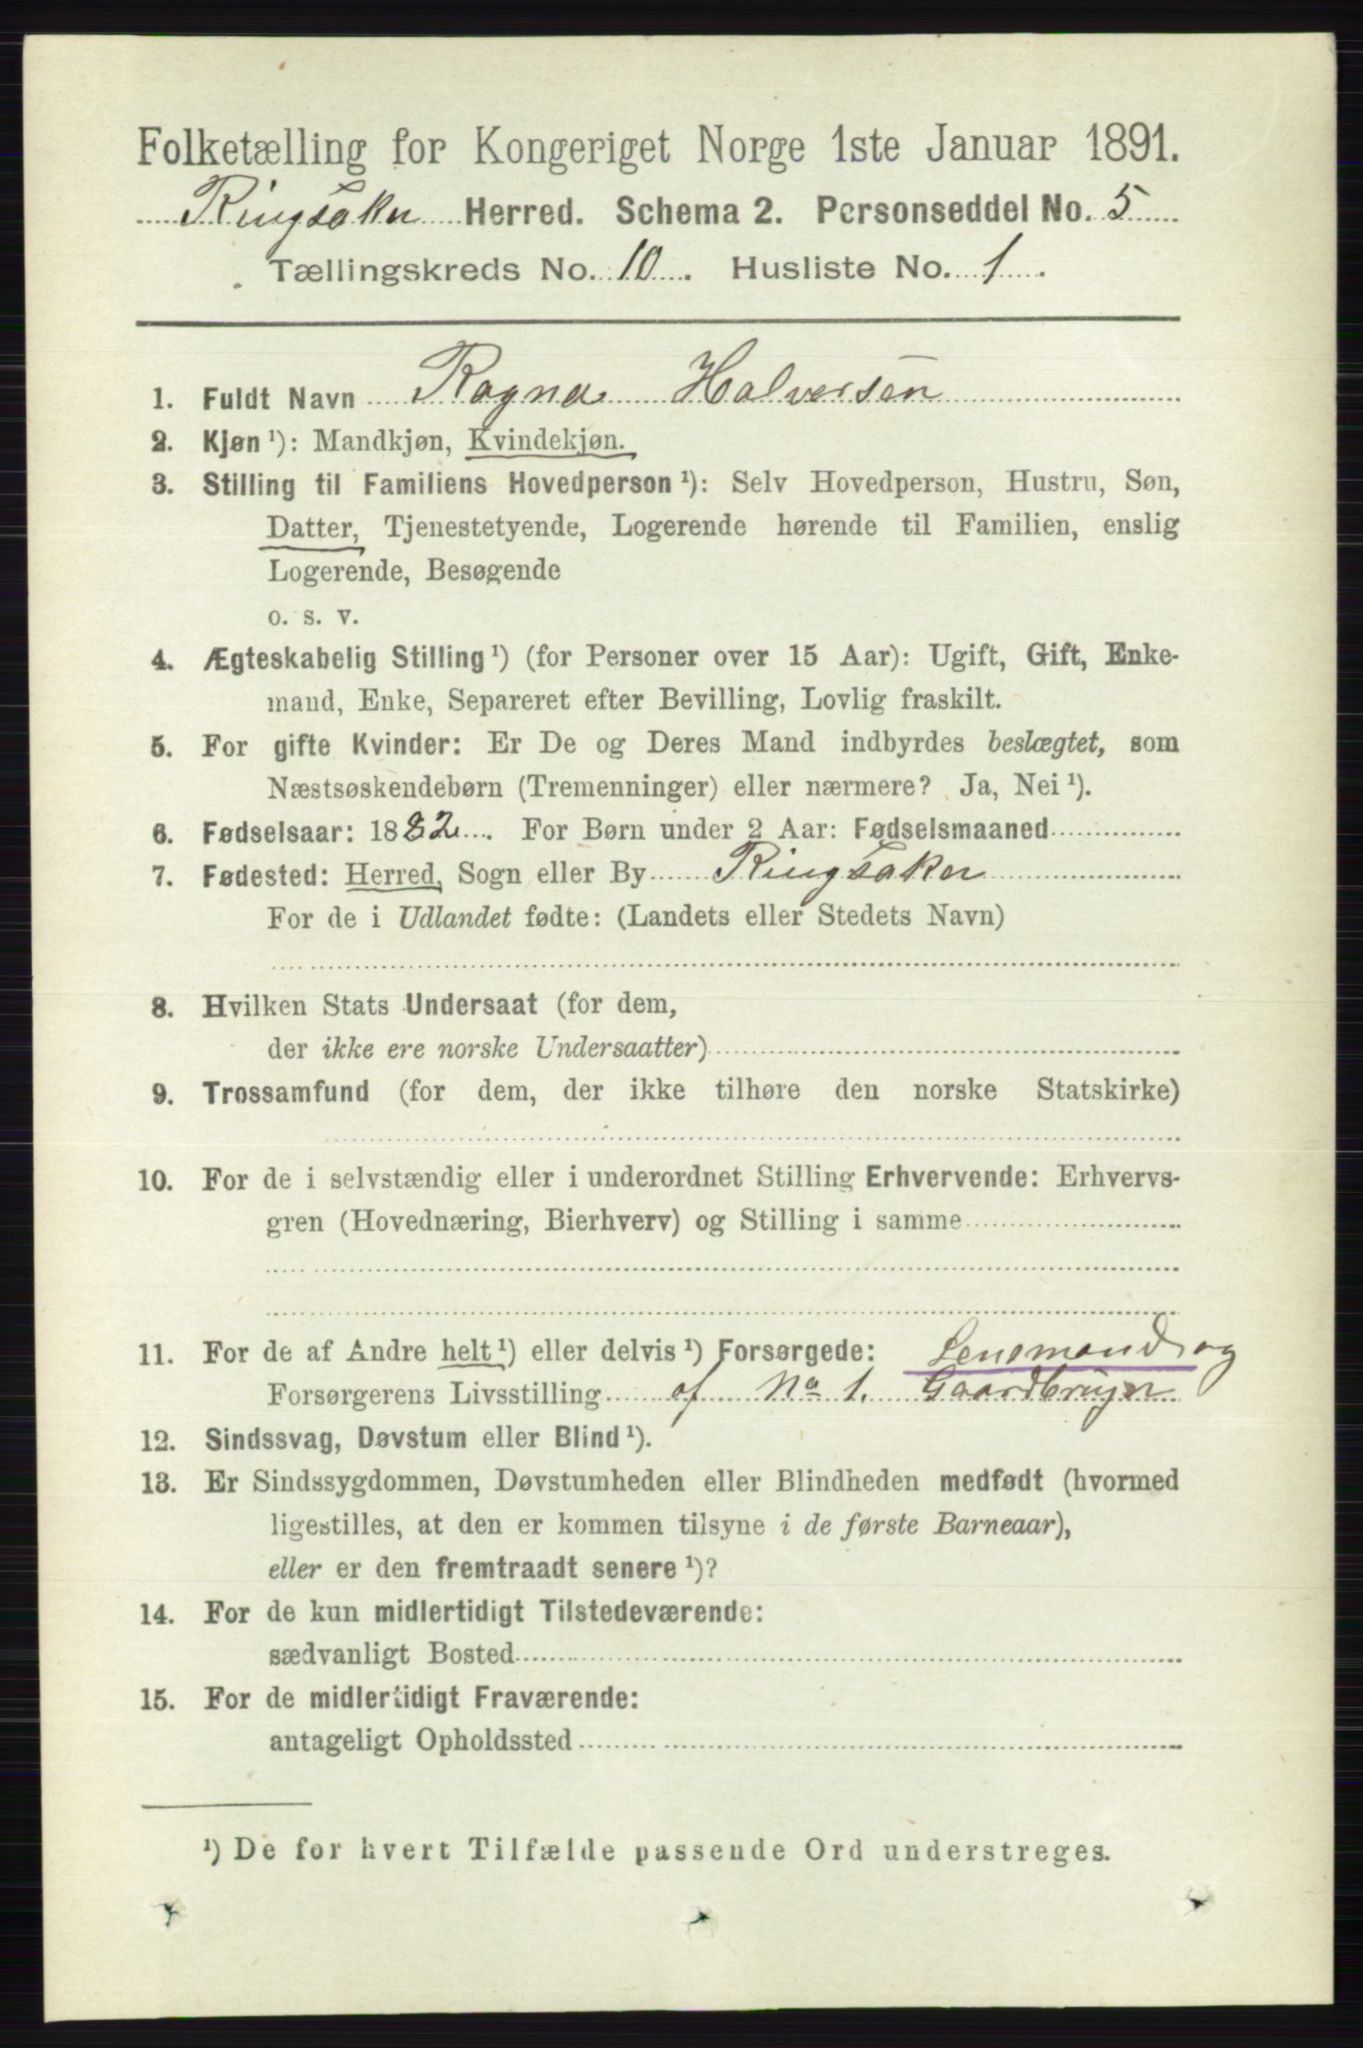 Folketælling for Kongeriget Norge 1ste Januar 1891.
Ringsaker Herred. Schema 2. Personseddel No. 5
Tællingskreds No. 10. Husliste No. 1.
1. Fuldt Navn Ragna Halversen
2. Kjøn ¹): Mandkjøn, Kvindekjøn.
3. Stilling til Familiens Hovedperson ¹): Selv Hovedperson, Hustru, Søn,
Datter, Tjenestetyende, Logerende hørende til Familien, enslig
Logerende, Besøgende
o. s. v.
4. Ægteskabelig Stilling ¹) (for Personer over 15 Aar): Ugift, Gift, Enke-
mand, Enke, Separeret efter Bevilling, Lovlig fraskilt.
5. For gifte Kvinder: Er De og Deres Mand indbyrdes beslægtet, som
Næstsøskendebørn (Tremenninger) eller nærmere? Ja, Nei ¹).
6. Fødselsaar: 1882. For Børn under 2 Aar: Fødselsmaaned
7. Fødested: Herred, Sogn eller By Ringsaker
For de i Udlandet fødte: (Landets eller Stedets Navn)
8. Hvilken Stats Undersaat (for dem,
der ikke ere norske Undersaatter)
9. Trossamfund (for dem, der ikke tilhøre den norske Statskirke)
10. For de i selvstændig eller i underordnet Stilling Erhvervende: Erhvervs-
gren (Hovednæring, Bierhverv) og Stilling i samme
11. For de af Andre helt ¹) eller delvis ¹) Forsørgede: Lensmand og
Forsørgerens Livsstilling af No 1. Gaardbruger
12. Sindssvag, Døvstum eller Blind ¹).
13. Er Sindssygdommen, Døvstumheden eller Blindheden medfødt (hvormed
ligestilles, at den er kommen tilsyne i de første Barneaar),
eller er den fremtraadt senere ¹)?
14. For de kun midlertidigt Tilstedeværende:
sædvanligt Bosted
15. For de midlertidigt Fraværende:
antageligt Opholdssted
¹) De for hvert Tilfælde passende Ord understreges.